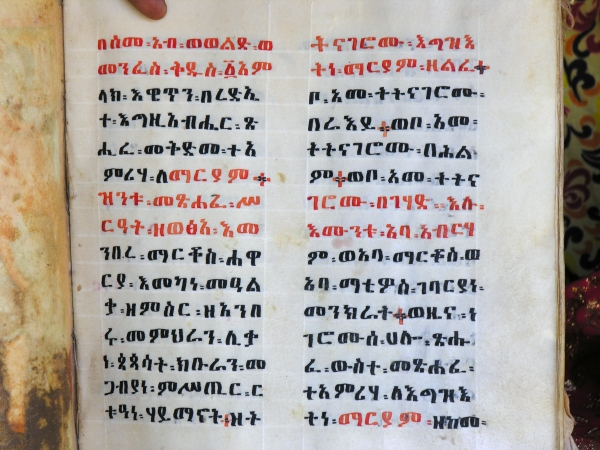 በስመ፡አብ፡ወወልድ፡ወ
መንፈስ፡ቅዱስ፡፩አም
ላክ፡እዌጥን፡በረድኤ
ተ፡እግዚአብሔር፡ጽ
ሒፈ፡መቅድመ፡ተአ
ምሪሃ፡ለማርያም፡
ዝንቱ፡መጽሐፈ፡ሥ
ርዓት፡ዘወፅአ፡እመ
ንበረ፡ማርቆስ፡ሐዋ
ርያ፡እመካነ፡መዓል
ቃ፡ዘምስር፡ዘአንበ
ሩ፡መምህራን፡ሊቃ
ነ፡ጳጳሳት፡ክቡራን፡መ
ጋብያነ፡ምሥጢር፡ር
ቱዓነ፡ሃይማኖት፡ዘት
ትናገሮሙ፡እግዝእ
ትነ፡ማርያም፡ዘልፈ
ቦ፡አመ፡ተትናገሮሙ፡
በራእይ፡ወቦ፡አመ፡
ትትናገሮሙ፡በሕል
ም፡ወቦ፡አመ፡ትትና
ገሮሙ፡በገሃድ፡እሉ
እሙንቱ፡አባ፡አብርሃ
ም፡ወአባ፡ማርቆስ፡ወ
አባ፡ማቴዎስ፡ገባርያነ፡
መንክራት፡ወዜና፡ነ
ገሮሙሰ፡ሀሎ፡ጽሑ
ፈ፡ውስተ፡መጽሐፈ፡
ተአምሪሃ፡ለእግዝእ
ትነ፡ማርያም፡ዘከመ፡